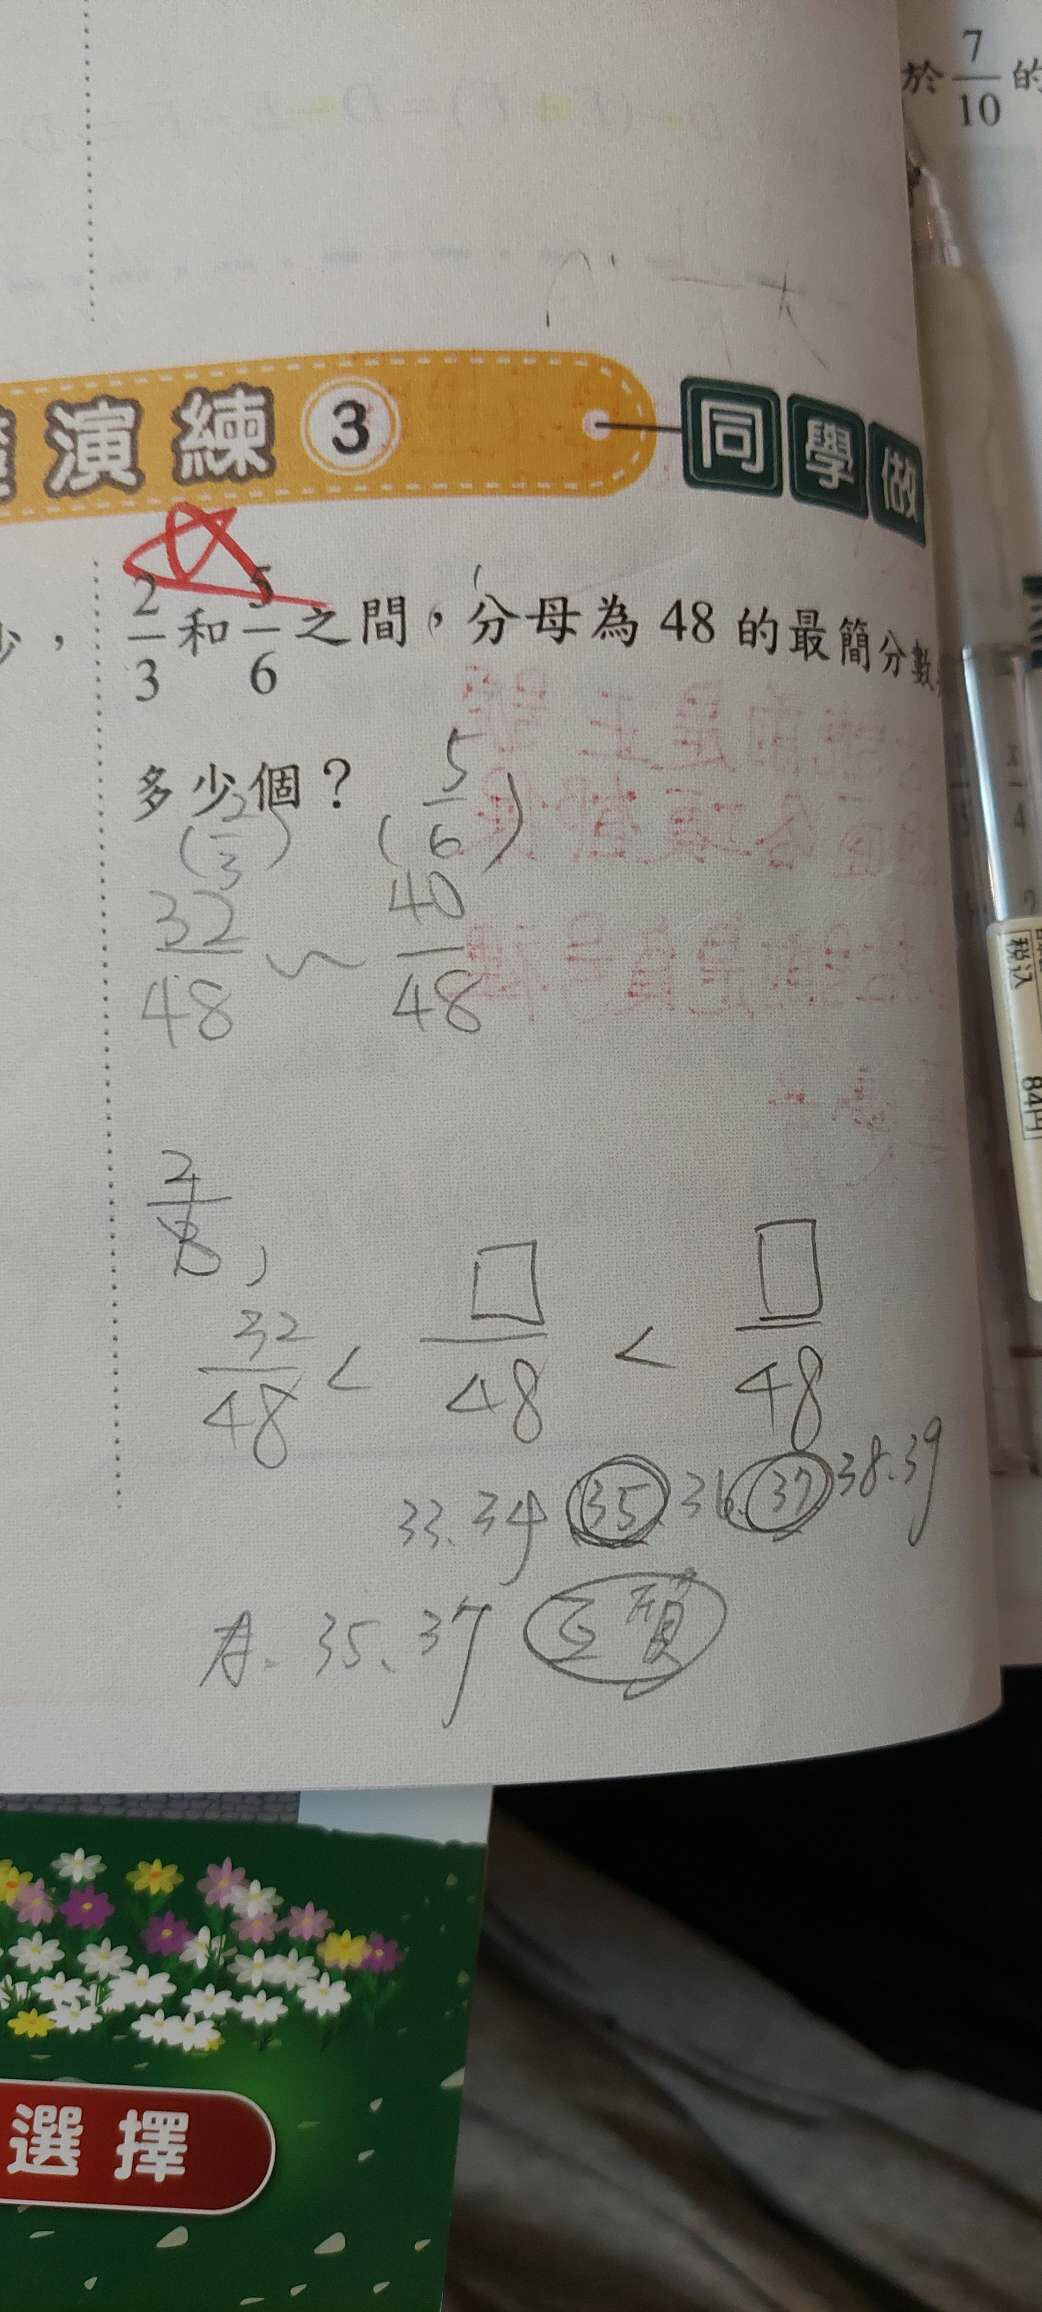 於 7/10 的
演練 3 同學做
少,
2/3 和 5/6 之間,分母為 48 的最簡分數
多少個?
(2/3) (5/6)
32/48 ~ 40/48
32/48 < □/48 < □/48
33. 34 35. 36. 37 38. 39
A. 35、37 互質
税込
84円
選擇